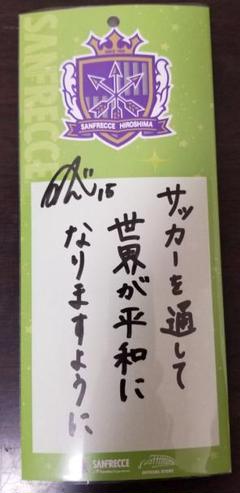 SANFRECCE
SANFRECCE HIROSHIMA
サッカーを通して
世界が平和に
なりますように
SANFRECCE